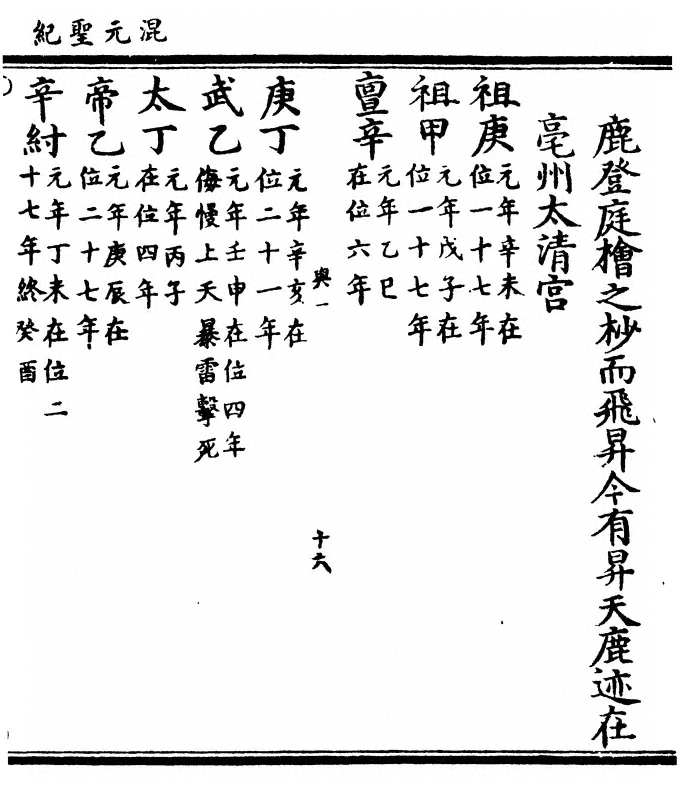 混元聖紀
鹿登庭檜之杪而飛昇今有昇天鹿迹在
亳州太清宮
祖庚元年辛未在位一十七年
祖甲元年戊子在位一十七年
亶辛元年乙巳在位六年
與一
十六
庚丁元年辛亥在位二十一年
武乙元年壬申在位四年侮慢上天暴雷擊死
太丁元年丙子在位四年
帝乙元年庚辰在位二十七年
辛紂元年丁未在位二十七年終癸酉